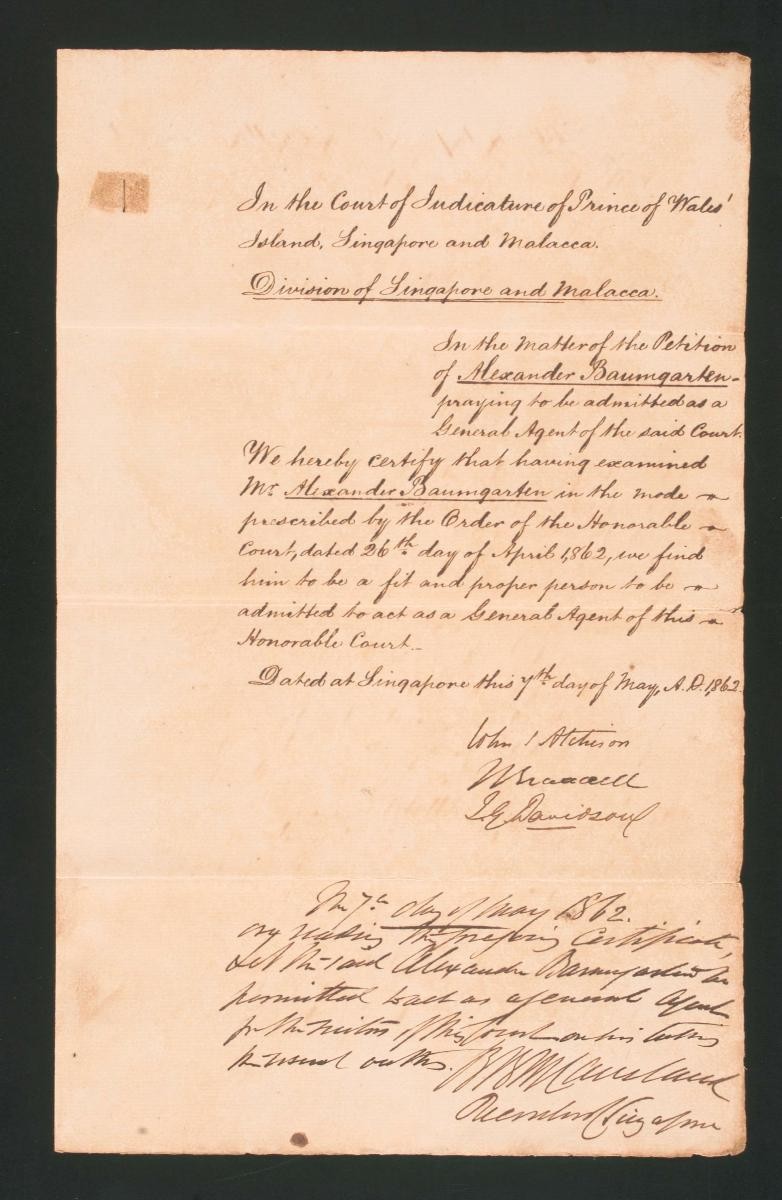 In the Court of Judicature of Prince of Wales'
Island, Singapore and Malacca.
Division of Singapore and Malacca.
In the Matter of the Petition
of Alexander Baumgarten
praying to be admitted as a
General Agent of the said Court.
We hereby certify that having examined
Mr Alexander Baumgarten in the mode
prescribed by the Order of the Honorable
Court, dated 26th day of April 1,862, we find
him to be a fit and proper person to be
admitted to act as a General Agent of this
Honorable Court.
Dated at Singapore this 7th day of May, A.D. 1,862
John Atchison
J.G. Davidson
The 7th day of May 1862.
on reading the foregoing Certificate,
Let the said Alexander Baumgarten be
permitted to act as a general Agent
for the suitors of this Court on his taking
the usual oaths.
Recorder Singapore